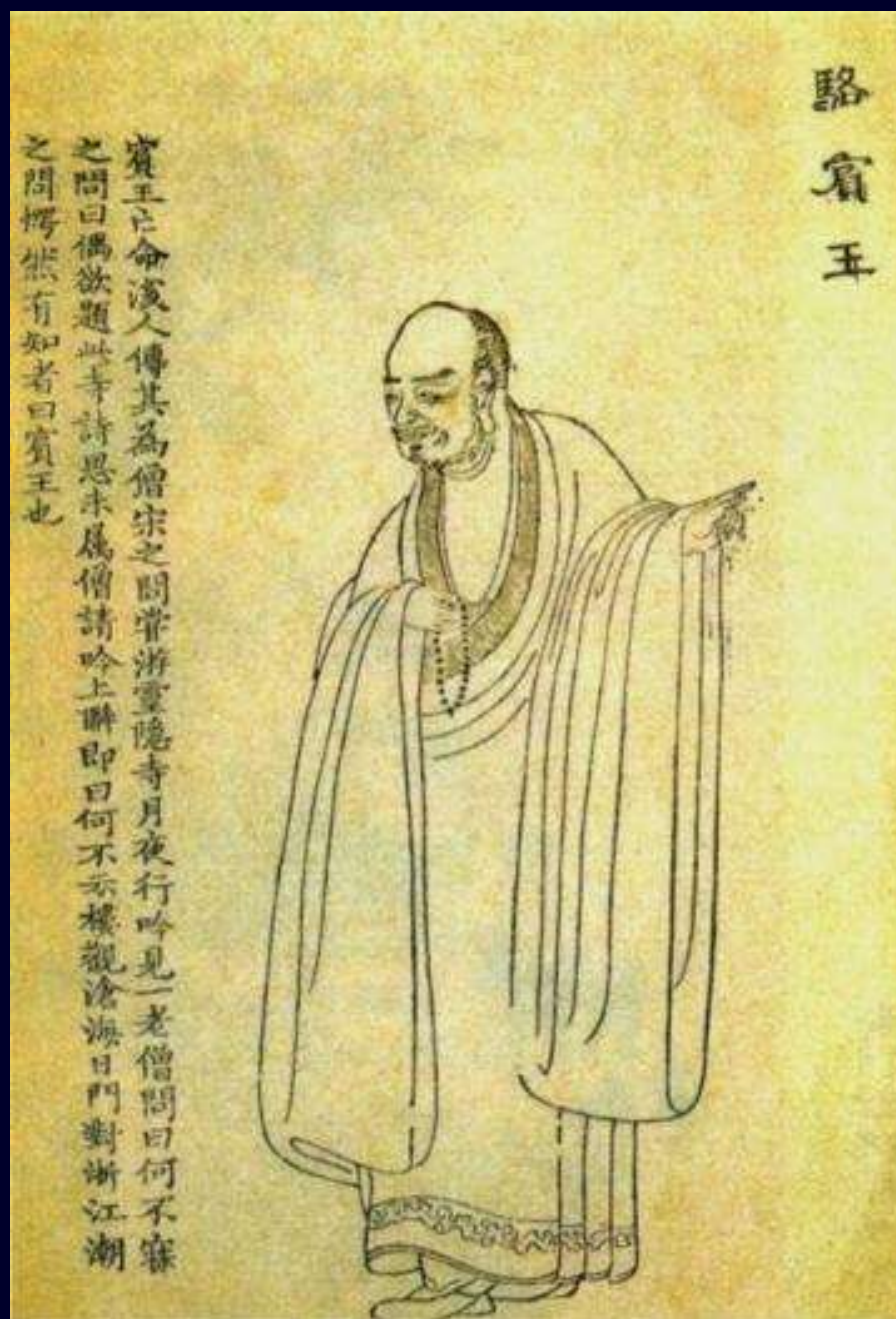 駱賓王
賓王亡命後人傳其為僧宋之問嘗游靈隐寺月夜行吟見一老僧問曰何不寐
之問曰偶欲題此寺詩思未屬僧請吟上聮即曰何不云樓觀滄海日門對浙江潮
之問愕然有知者曰賓王也